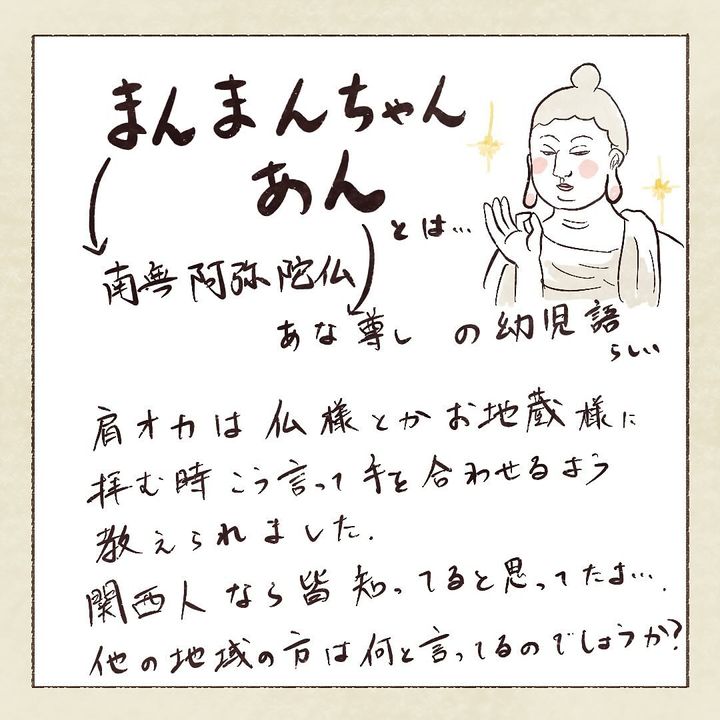 まんまんちゃん
あん
とは…
南無阿弥陀仏
あな尊し の幼児語
らしい
肩オカは仏様とかお地蔵様に
拝む時こう言って手を合わせるよう
教えられました.
関西人なら皆知ってると思ってたま….
他の地域の方は何と言ってるのでしょうか?